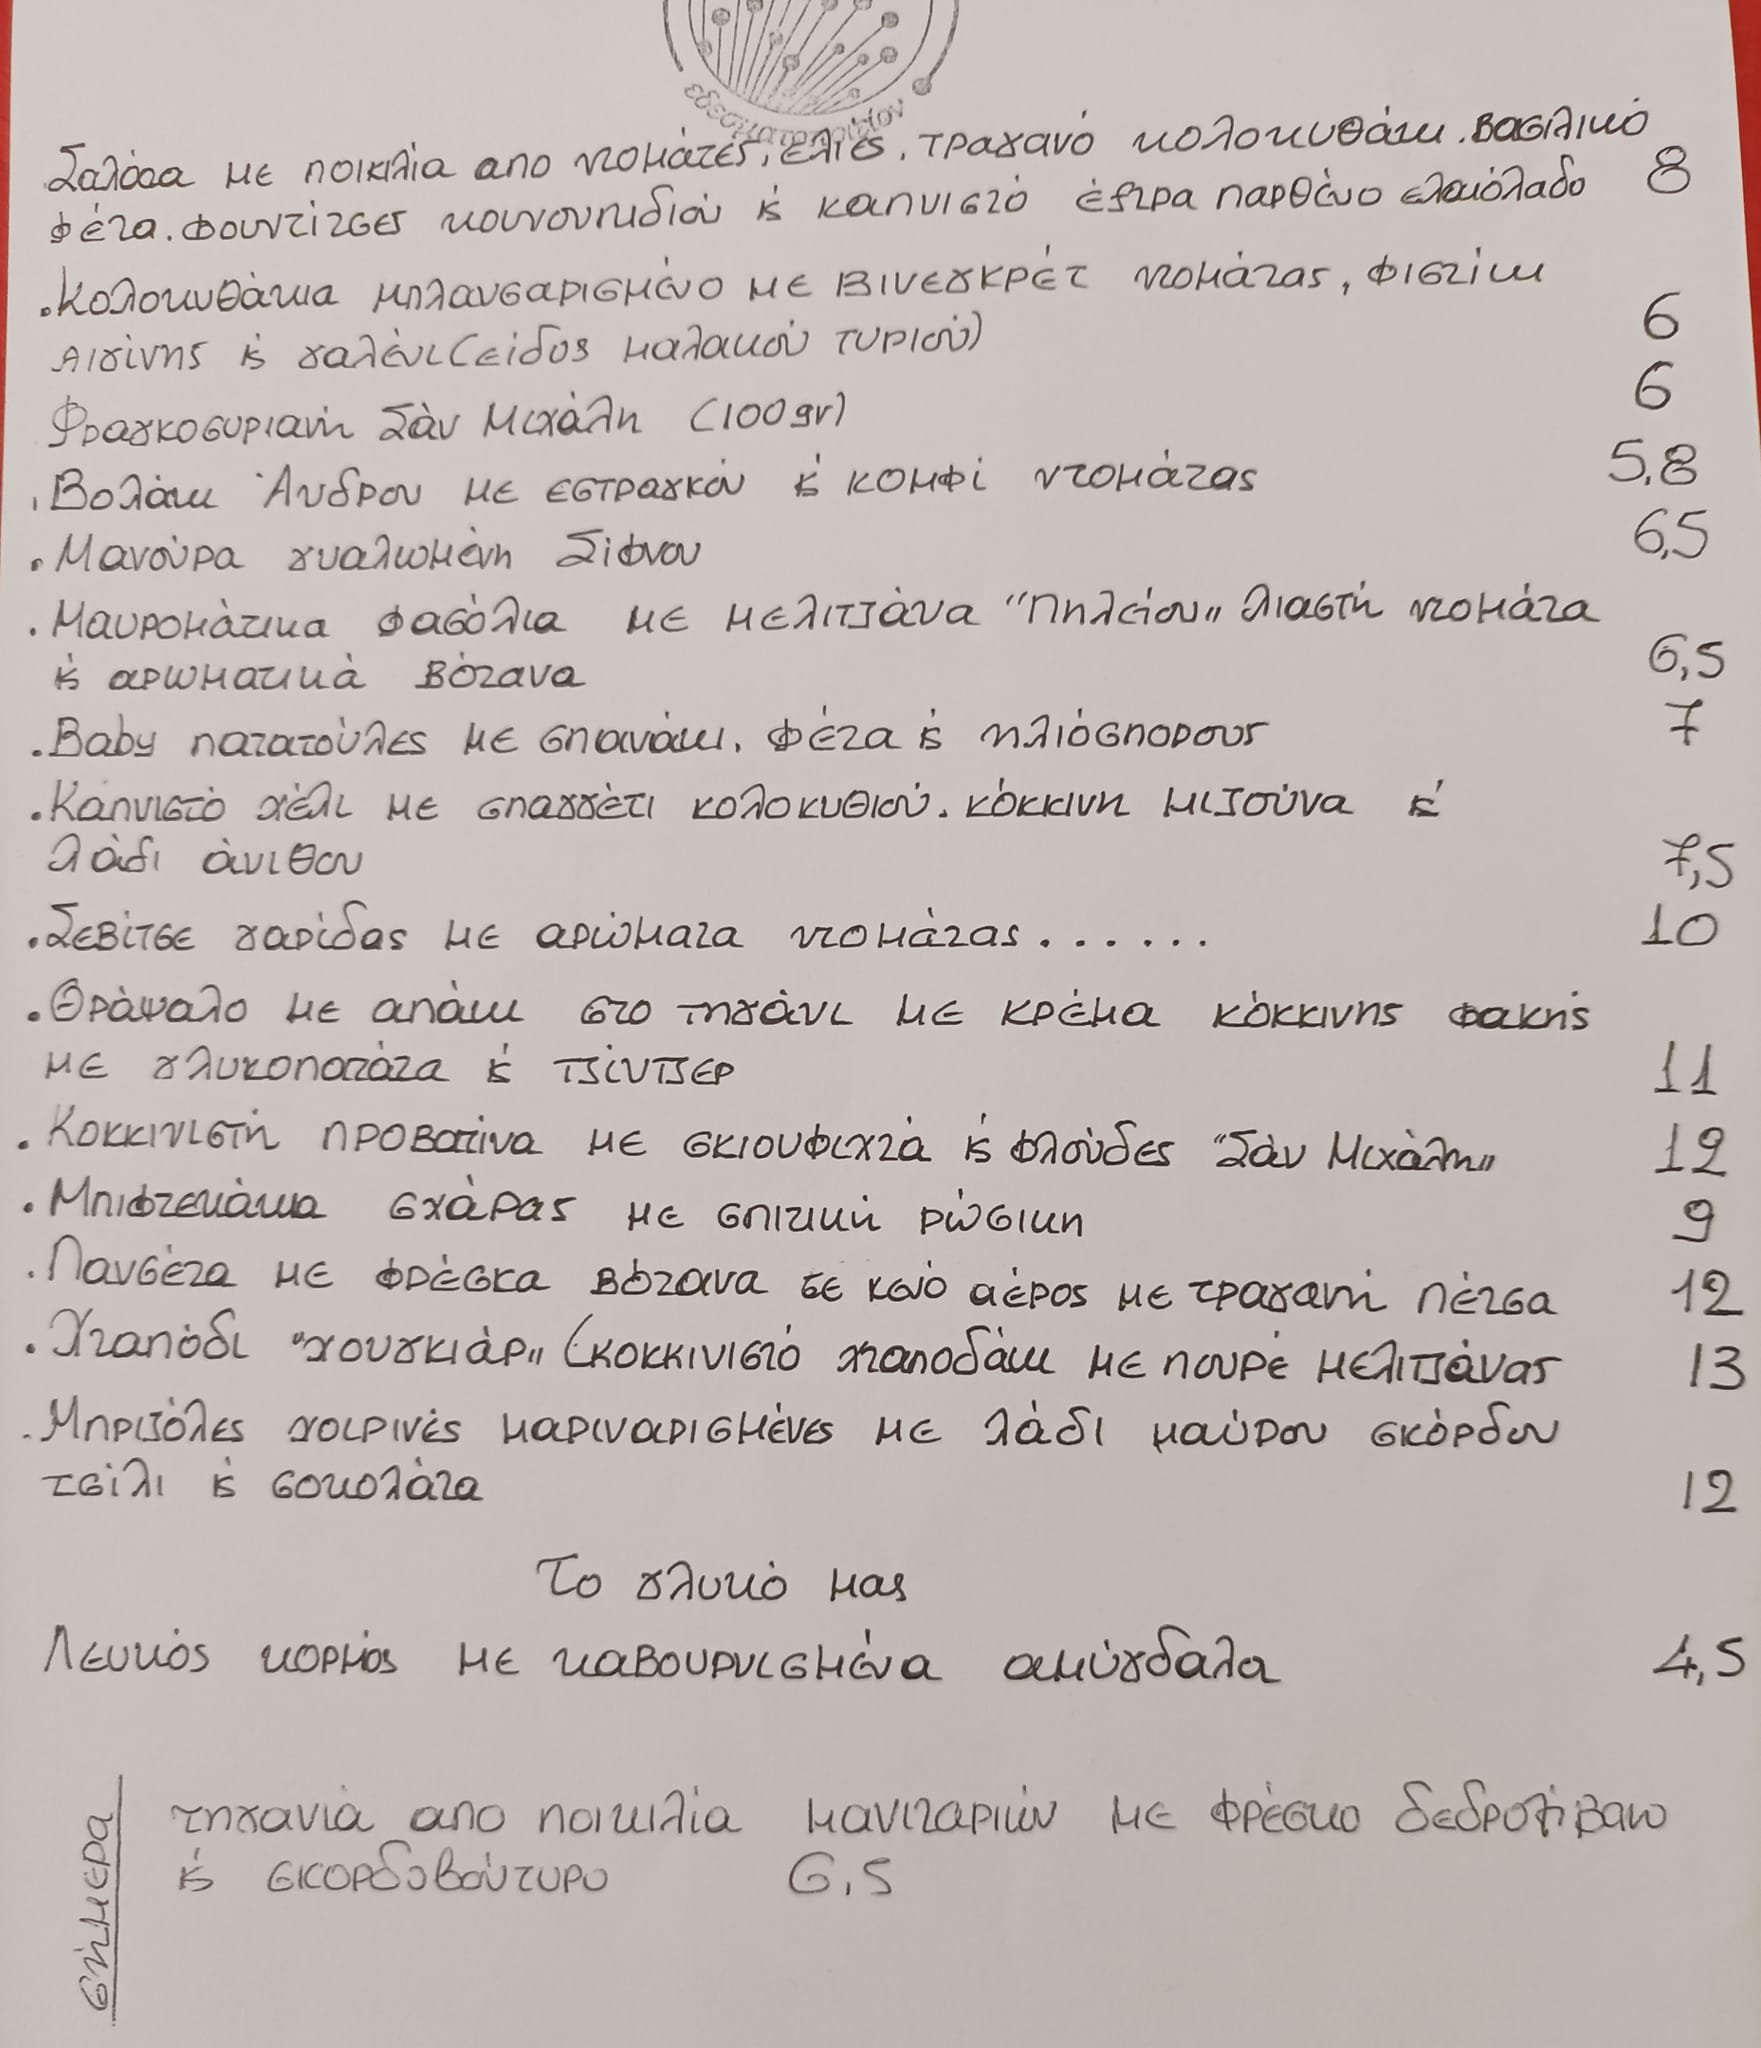 εδεσματοπωλείον
Σαλάτα με ποικιλία απο ντομάτες, ελιές, τραγανό κολοκυθάκι. Βασιλικό
φέτα. φουντίτσες κουνουπιδιού κ' καπνιστό έξτρα παρθένο ελαιόλαδο 8
. Κολοκυθάκια μπλανσαρισμένο με βινεγκρέτ ντομάτας, φιστίκι
Αιγίνης κ' γαλένι (είδος μαλακού τυριού) 6
Φραγκοσυριανή Σάν Μιχάλη (100gr) 6
. Βολάκι Άνδρου με εστραγκόν κ' κομφί ντομάτας 5,8
. Μανούρα γυαλωμένη Σίφνου 6,5
. Μαυρομάτικα φασόλια με μελιτζάνα "Πηλείου" λιαστή ντομάτα
κ' αρωματικά βότανα 6,5
. Baby πατατούλες με σπανάκι. φέτα κ' ηλιόσπορους 7
. Καπνιστό χέλι με σπαγγέτι κολοκυθιού. κόκκινη μιζούνα κ'
λάδι άνιθου 7,5
. Σεβίτσε γαρίδας με αρώματα ντομάτας ...... 10
. Θράψαλο με απάκι στο τηγάνι με κρέμα κόκκινης φακής
με γλυκοπατάτα κ' τζίντζερ 11
. Κοκκινιστή προβατίνα με σκιουφιχτά κ' φλούδες "Σάν Μιχάλη" 12
. Μπιφτεκάκια σχάρας με σπιτική ρώσικη 9
. Πανσέτα με φρέσκα βότανα σε κενό αέρος με τραγανή πέτσα 12
. Χταπόδι "χουγκιάρ" (κοκκινιστό χταποδάκι με πουρέ μελιτζάνας 13
. Μπριζόλες χοιρινές μαριναρισμένες με λάδι μαύρου σκόρδου
τσίλι κ' σοκολάτα 12
Το γλυκό μας
Λευκός κορμός με καβουρνισμένα αμύγδαλα 4,5
σήμερα
τηγανιά απο ποικιλία μανιταριών με φρέσκο δεδρολίβανο
κ' σκορδοβούτυρο 6,5